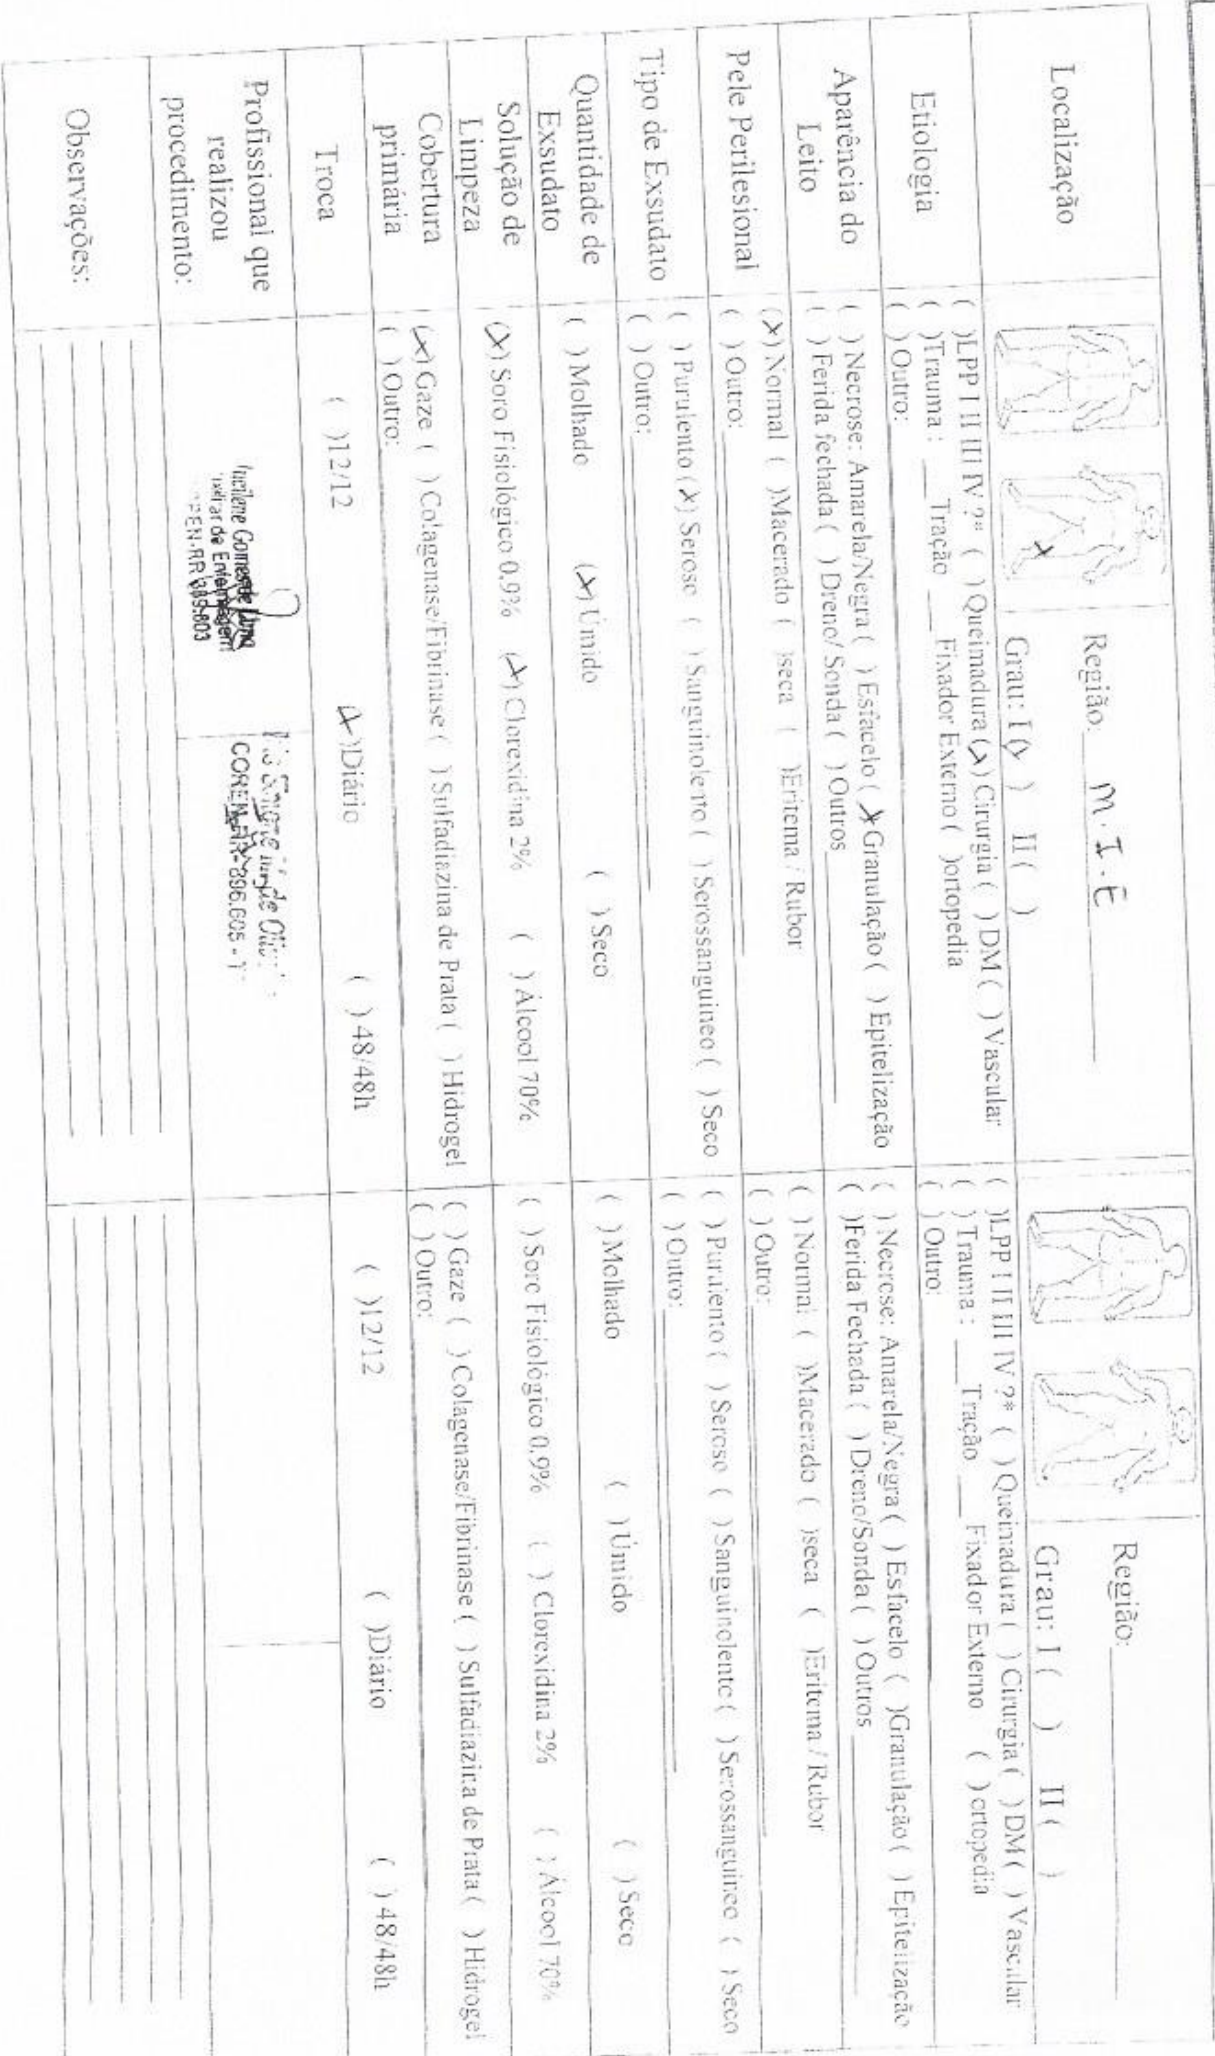 Localização
Região: M.I.E
Grau: I (X) II ( )
Região:
Grau: I ( ) II ( )
Etiologia
( )LPP I II III IV ?* ( ) Queimadura (X) Cirurgia ( ) DM ( ) Vascular
( )Trauma : ___ Tração ___ Fixador Externo ( )ortopedia
( ) Outro:
( )LPP I II III IV ?* ( ) Queimadura ( ) Cirurgia ( ) DM ( ) Vascular
( ) Trauma : ___ Tração ___ Fixador Externo ( ) ortopedia
( ) Outro:
Aparência do
Leito
( ) Necrose: Amarela/Negra ( ) Esfacelo (X Granulação ( ) Epitelização
( ) Ferida fechada ( ) Dreno/ Sonda ( ) Outros
( ) Necrose: Amarela/Negra ( ) Esfacelo ( )Granulação ( ) Epitelização
( )Ferida Fechada ( ) Dreno/Sonda ( ) Outros
Pele Perilesional
(X) Normal ( )Macerado ( )seca ( )Eritema / Rubor
( ) Outro:
( ) Normal ( )Macerado ( )seca ( )Eritema / Rubor
( ) Outro:
Tipo de Exsudato
( ) Purulento (X) Seroso ( ) Sanguinolento ( ) Serossanguineo ( ) Seco
( ) Outro:
( ) Purulento ( ) Seroso ( ) Sanguinolento ( ) Serossanguineo ( ) Seco
( ) Outro:
Quantidade de
Exsudato
( ) Molhado (X) Úmido ( ) Seco
( ) Molhado ( ) Úmido ( ) Seco
Solução de
Limpeza
(X) Soro Fisiológico 0,9% (X) Clorexidina 2% ( ) Álcool 70%
( ) Soro Fisiológico 0,9% ( ) Clorexidina 2% ( ) Álcool 70%
Cobertura
primária
(X) Gaze ( ) Colagenase/Fibrinase ( ) Sulfadiazina de Prata ( ) Hidrogel
( ) Outro:
( ) Gaze ( ) Colagenase/Fibrinase ( ) Sulfadiazina de Prata ( ) Hidrogel
( ) Outro:
Troca
( )12/12 (X)Diário ( ) 48/48h
( )12/12 ( )Diário ( ) 48/48h
Profissional que
realizou
procedimento:
Gomes de Lima
de Enfermagem
COREN-RR
Observações: